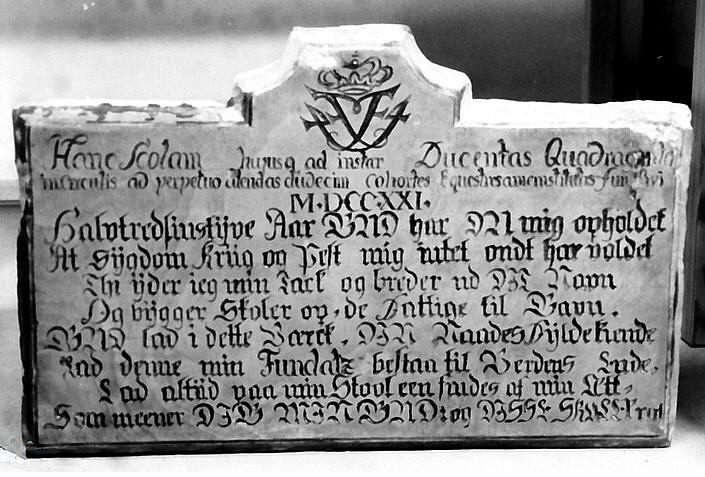 Hanc Scolam hujusq ad instar Ducentas Quadragin
ad perpetuo alendas duodecim cohortes
M·DCC·XXI.
Halvtredsinstijve Aar GUD har DU mig opholdet
At Sijgdom Krüg og Pest mig intet ondt har voldet
Thi ijder ieg min Tack og breder ud DIT Navn
Og bijgger Skoler op, de Fattige til Gavn.
GUD lad i dette Værck, DIN Naades Fijlde kiende
Lad denne min Fundatz bestaa til Verdens Ende,
Lad altiid paa min Stool een findes af min Ætt,
Som meener DIG MIN GUD: og DISSE SKOLER ret